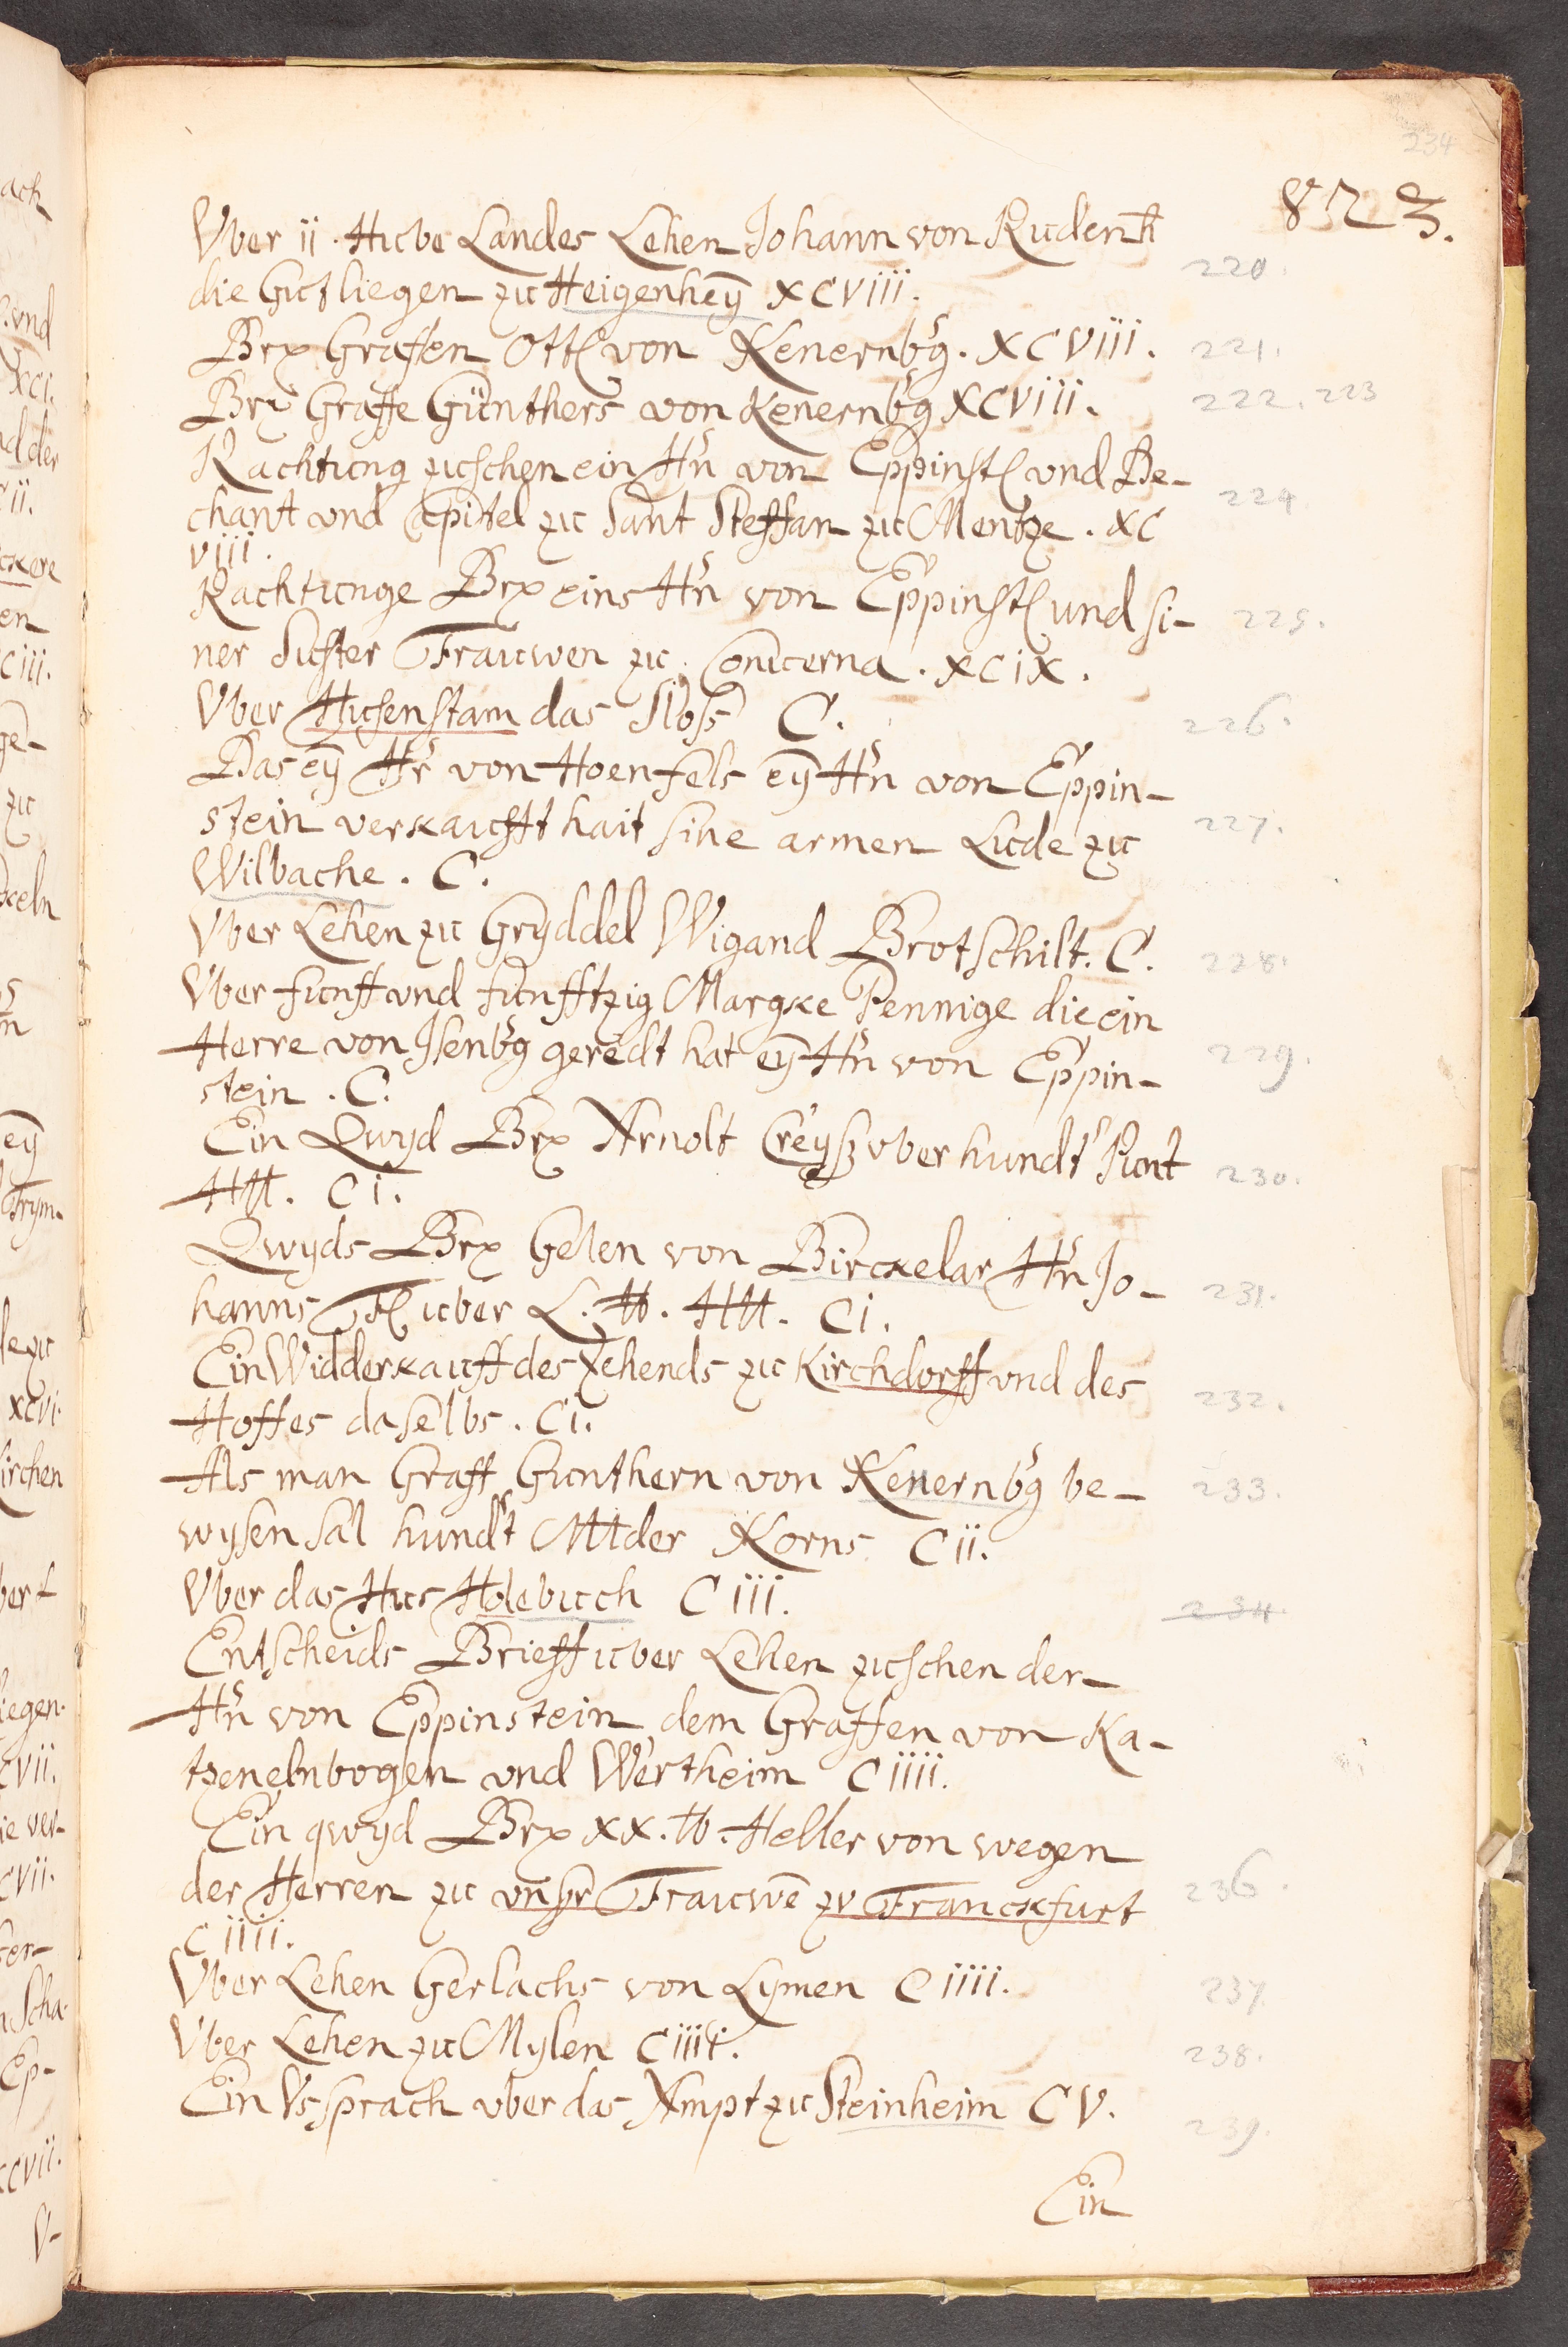 234
823.
Vber ii. Hube Landes Lehen Johann von Rudenh
die Gut liegen zu Heigenheȳ XCViii. 220.
Brx Graffen Ott von Kenernb'g. XCViii. 221.
Brx Graffe Günthers von Kenernb'g XCViii. 222. 223
Rachtung zuschen ein H'n von Eppinst vnd De-
chant vnd Capitel zu Sant Steffan zu Mentze. XC 224.
viii.
Rachtunge Brx eins H'n von Eppinst und si- 225.
ner Suster Frauwen zu XCiX.
Vber Husenstam das Sloß C. 226.
Das eȳ H'r von Hoenfels eȳ H'n von Eppin-
stein verkaufft hait sine armen Lude zu 227.
Wilbache. C.
Vber Lehen zu Gryddel Wigand Brotschilt. C. 228.
Vber funff vnd funfftzig Margke Pennige die ein
Herre von Isenb'g geredt hat eȳ H'n von Eppin- 229.
stein. C.
Ein Qwyd Brx Arnolt Creyß vber hund't Punt 230.
Hll. Ci.
Qwyds Brx Gelen von Birckelar H'n Jo- 231.
hanns uber L. ℔. Hll. Ci.
Ein Widderkauff des Zehends zu Kirchdorff vnd des
Hoffes daselbs. Ci. 232.
Als man Graff Gunthern von Kenernb'g be- 233.
wysen sal hund't Mlder Korns Cii.
Vber das Hus Holebuch Ciii. 234.
Entscheids Brieff uber Lehen zuschen der
H'n von Eppinstein dem Graffen von Ka-
tzenelnbogen vnd Wertheim Ciiii.
Ein qwyd Brx XX. ℔. Heller von wegen
der Herren zu vnsr Frauwē zv Franckfurt 236.
Ciiii.
Vber Lehen Gerlachs von Lymen Ciiii. 237.
Vber Lehen zu Mylen Ciiii. 238.
Ein Vssprach vber das Ampt zu Steinheim CV. 239.
Ein